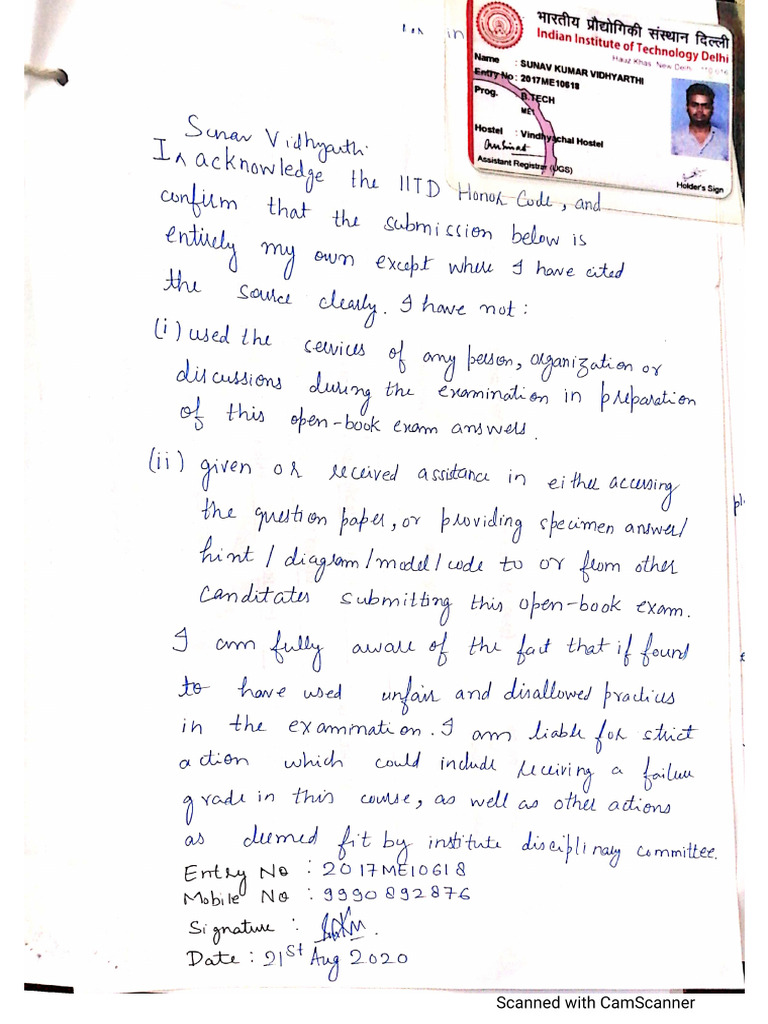 भारतीय प्रौद्योगिकी संस्थान दिल्ली
Indian Institute of Technology Delhi
Hauz Khas, New Delhi - 110 016
Name : SUNAV KUMAR VIDHYARTHI
Entry No : 2017ME10618
Prog. : B.TECH
ME1
Hostel : Vindhyachal Hostel
Assistant Registrar (UGS)
Holder's Sign
Sunav Vidhyarthi
I ^ acknowledge the IITD Honor Code, and
confirm that the submission below is
entirely my own except where I have cited
the source clearly. I have not:
(i) used the services of any person, organization or
discussions during the examination in preparation
of this open-book exam answers.
(ii) given or received assistance in either accessing
the question paper, or providing specimen answer/
hint / diagram/model/code to or from other
canditates submitting this open-book exam.
I am fully aware of the fact that if found
to have used unfair and disallowed practices
in the examination. I am liable for strict
action which could include receiving a failure
grade in this course, as well as other actions
as deemed fit by institute disciplinary committee.
Entry No : 2017ME10618
Mobile No : 9990892876
Signature :
Date : 21st Aug 2020
Scanned with CamScanner